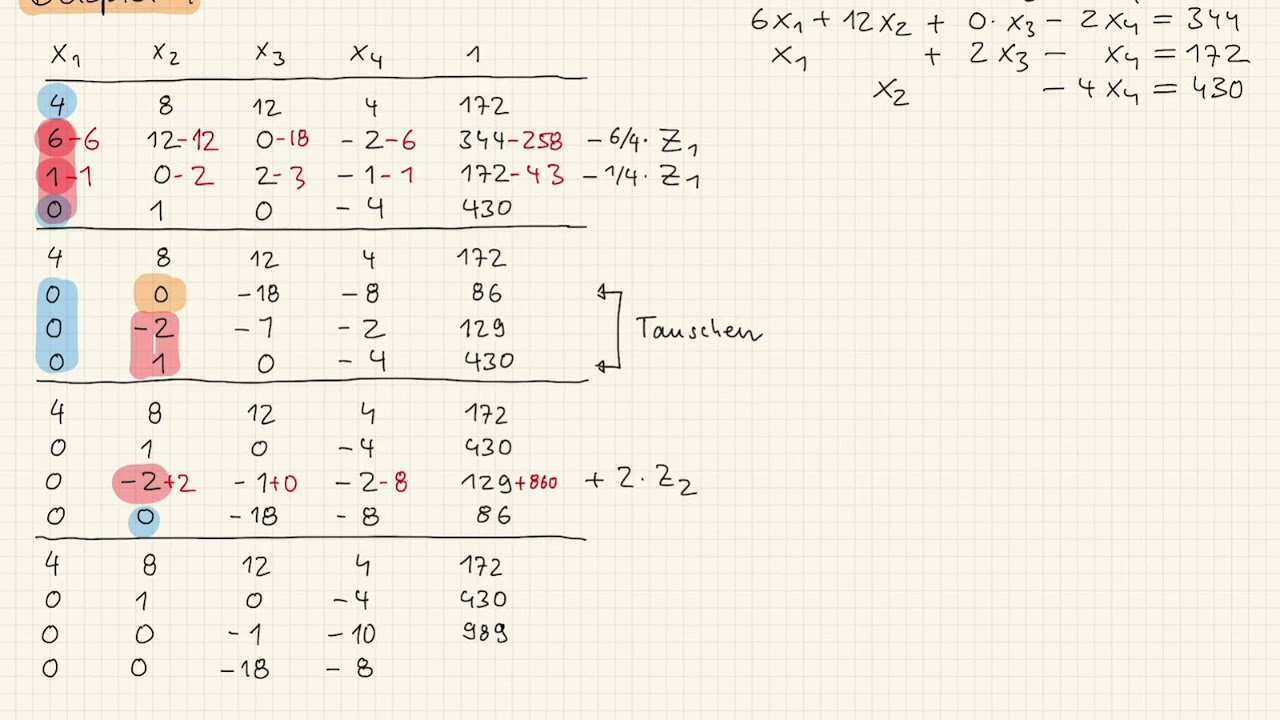 Beispiel 1
6x₁ + 12x₂ + 0·x₃ - 2x₄ = 344
x₁ + 2x₃ - x₄ = 172
x₂ - 4x₄ = 430
x₁ x₂ x₃ x₄ 1
4 8 12 4 172
6-6 12-12 0-18 -2-6 344-258 -6/4·Z₁
1-1 0-2 2-3 -1-1 172-43 -1/4·Z₁
0 1 0 -4 430
4 8 12 4 172
0 0 -18 -8 86
0 -2 -1 -2 129 Tauschen
0 1 0 -4 430
4 8 12 4 172
0 1 0 -4 430
0 -2+2 -1+0 -2-8 129+860 +2·Z₂
0 0 -18 -8 86
4 8 12 4 172
0 1 0 -4 430
0 0 -1 -10 989
0 0 -18 -8